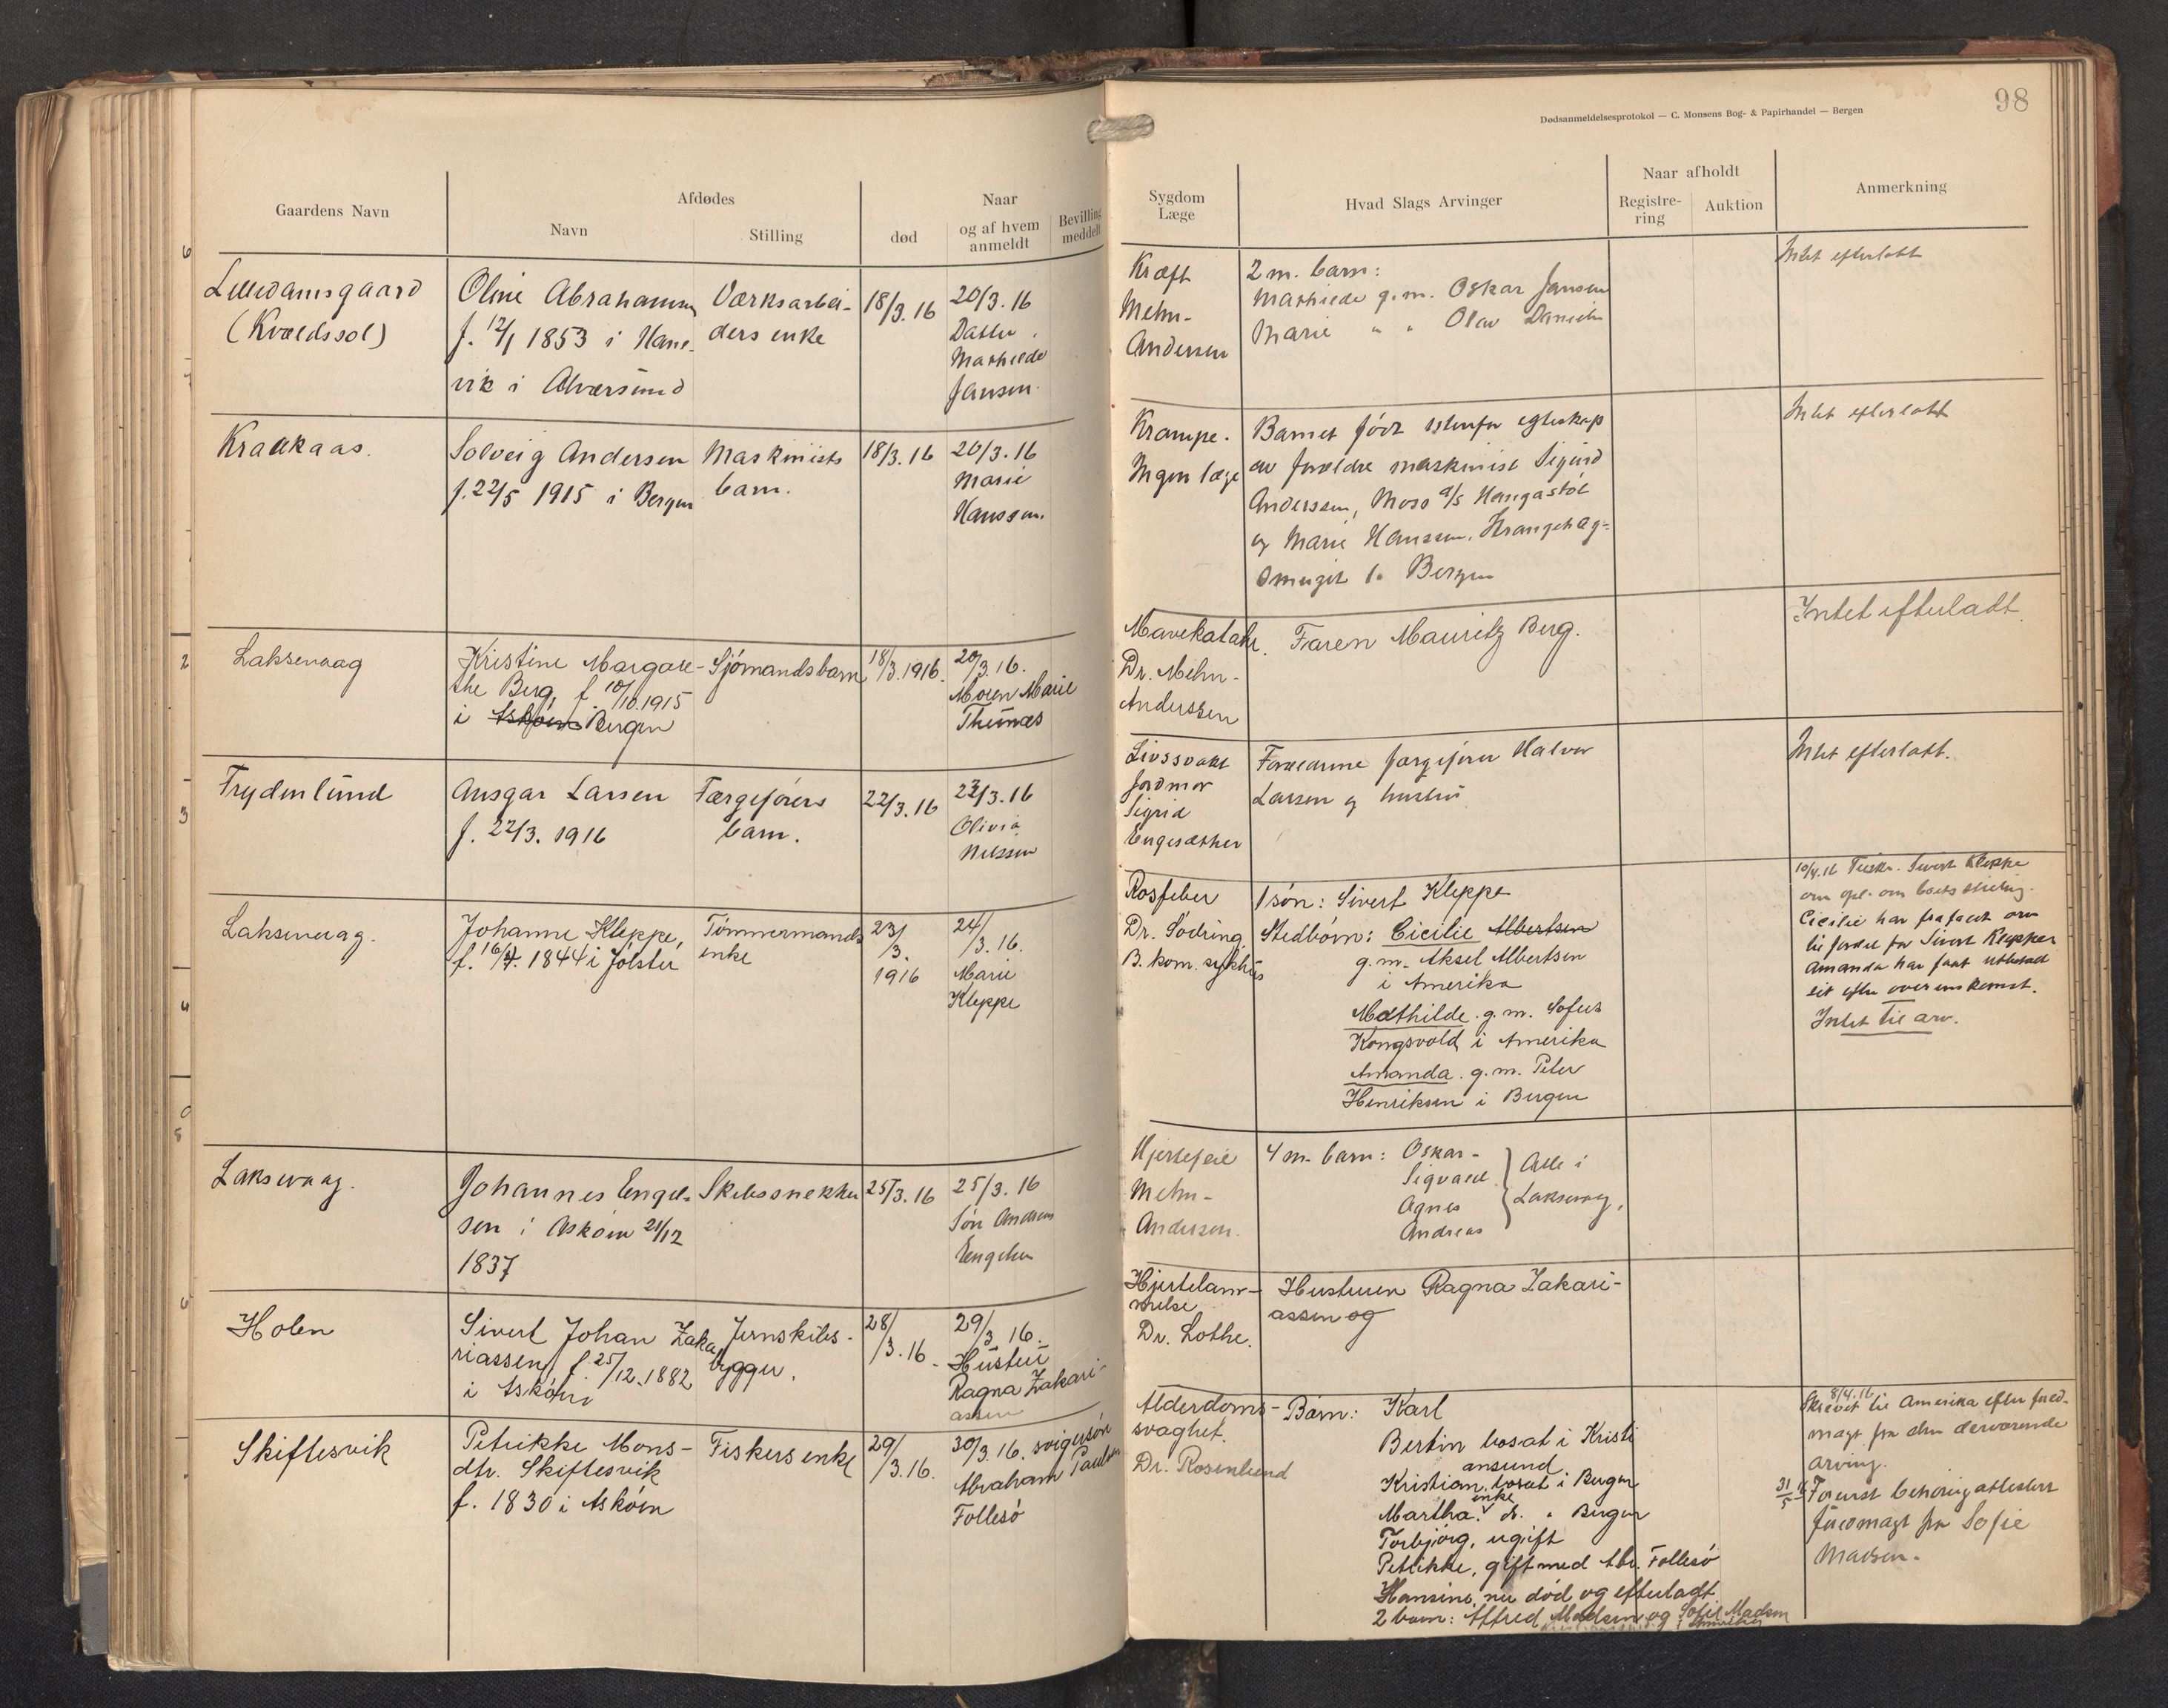 98
Dødsanmeldelsesprotokol — C. Monsens Bog- & Papirhandel — Bergen
Gaardens Navn
Afdødes
Navn
Stilling
død
Naar
og af hvem
anmeldt
Bevilling
meddelt
Sygdom
Læge
Hvad Slags Arvinger
Naar afholdt
Registre-
ring
Auktion
Anmerkning
Lillidamsgaard
(Kvældssol)
Oline Abrahamsen
f. 12/1 1853 i Hane-
vik i Alversund
Værksarbei-
ders enke
18/3. 16
20/3. 16
Datter
Mathilde
Jansen.
Kræft
Mehn-
Andersen
2 m. barn:
Mathilde g. m. Oskar Jansen
Marie " " Olav Danielsen
Intet efterlatt
Kraakaas.
Solveig Andersen
f. 22/5 1915 i Bergen
Maskinists
barn.
18/3. 16
20/3. 16
Marie
Hanssen.
Krampe.
Ingen læge
Barnet født utenfor egteskap
av forældre maskinist Sigurd
Anderssen, Moss a/s Haugastøl
og Marie Hanssen,
smuget 1. Bergen
Intet efterlatt
Laksevaag
Kristine Margare-
the Berg, f. 10/10.1915
i Askøen Bergen
Sjømandsbarn
18/3.1916.
20/3.16.
Moren Marie
Thunæs
Mavekatahr.
Dr. Mehn-
Anderssen
Faren Mauritz Berg.
Intet efterladt.
Frydenlund
Ansgar Larsen
f. 22/3. 1916
Færgeførers
barn.
22/3. 16
23/3. 16
Olivia
Nilssen
Livssvakt
Jordmor
Sigrid
Engesæther
Forældrene færgefører Halvor
Larsen og hustru
Intet efterlatt.
Laksevaag.
Johanne Kleppe,
f. 16/4. 1844 i Jølster
Tømmermands
enke
23/
3.
1916
24/
3. 16.
Marie
Kleppe
Rosfeber
Dr. Sødring
B. kom. sykehus
1 søn: Sivert Kleppe
Stedbørn: Cicilie Albertsen
g. m. Aksel Albertsen
i Amerika
Mathilde g. m. Sofus
Kongsvold i Amerika
Amanda. g. m. Peter
Henriksen i Bergen
10/4.16 Tilskr. Sivert Kleppe
om opl. om boets stilling.
Cicilie har frafaldt arv
til fordel for Sivert Kleppe
Amanda har faat utbetalt
sit efter overenskomst.
Intet til arv.
Laksevaag.
Johannes Engel-
sen i Askøen 21/12
1837
Skibssnekker
25/3. 16
25/3. 16
Søn Andreas
Engelsen
Hjertefeil
Mehn-
Andersen.
4 m. barn: Oskar -
Sigvald
Agnes
Andreas
Alle i
Laksevaag.
Holen
Sivert Johan Zaka-
riassen, f. 25/12.1882
i Askøen
Jernskibs-
bygger.
28/
3. 16.
29/
3 16.
Hustru
Ragna Zakari-
assen
Hjertelam-
melse
Dr. Lothe.
Hustruen Ragna Zakari-
assen og
Skiftesvik
Petrikke Mons-
dtr. Skiftesvik
f. 1830 i Askøen
Fiskers enke
29/
3.16.
30/3. 16. svigersøn
Abraham Paulsen
Follesø
Alderdoms-
svaghet.
Dr. Rosenlund
Børn: Karl
Bertin bosat i Kristi
ansund
Kristian, bosat i Bergen
enke
Martha. d. " Bergen
Torbjørg, ugift
Petrikke, gift med Abr. Follesø
Hansine, nu død og efterladt
2 barn: Alfred Madsen og Sofie Madsen
i Amerika
8/4.16
Skrevet til Amerika efter fuld-
magt fra den derværende
arving.
31/5 16 Foreløst behørig attestert
fuldmagt fra Sofie
Madsen.